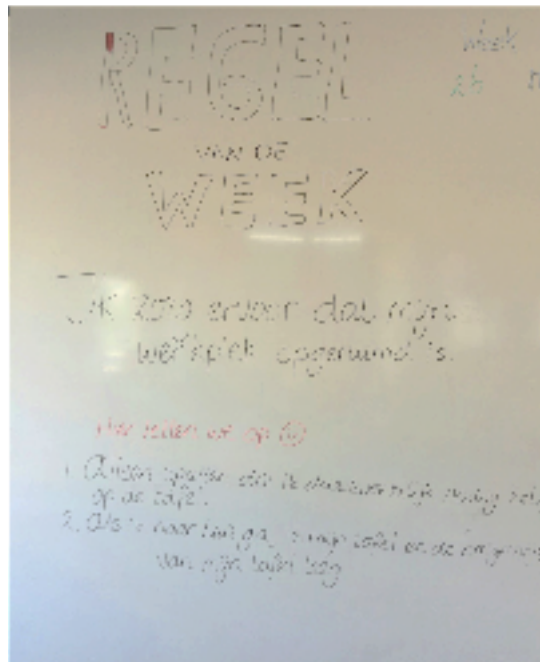 REGEL
week
25
VAN DE
WEEK
Ik zorg ervoor dat mijn
werkplek opgeruimd is.
Hier letten we op
1. Alleen spullen die ik
op de tafel.
2. Als ik naar huis ga, mijn tafel en de
van mijn tafel leeg